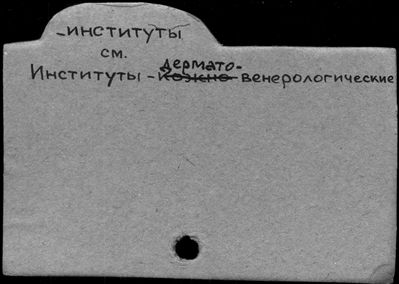 -институты
см.
дермато-
Институты - кожно - венерологические